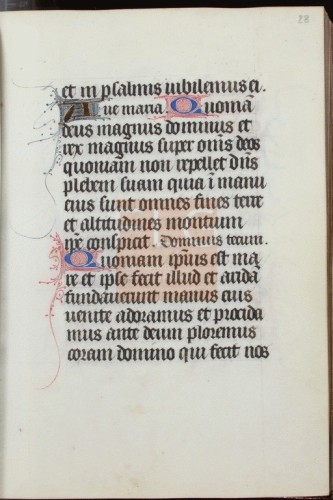 28
et in psalmis iubilemus ei.
Aue maria. Quoniā
deus magnus dominus et
rex magnus super om̄s deos
quoniam non repellet dn̄s
plebem suam quia ī manu
eius sunt omnes fines terre
et altitudines montium
ip̄e conspicit. Dominus tecum.
Quoniam ip̄ius est ma
re et ipse fecit illud et arida
fundauerunt manus eius
uenite adoremus et procida
mus ante deum ploremus
coram domino qui fecit nos